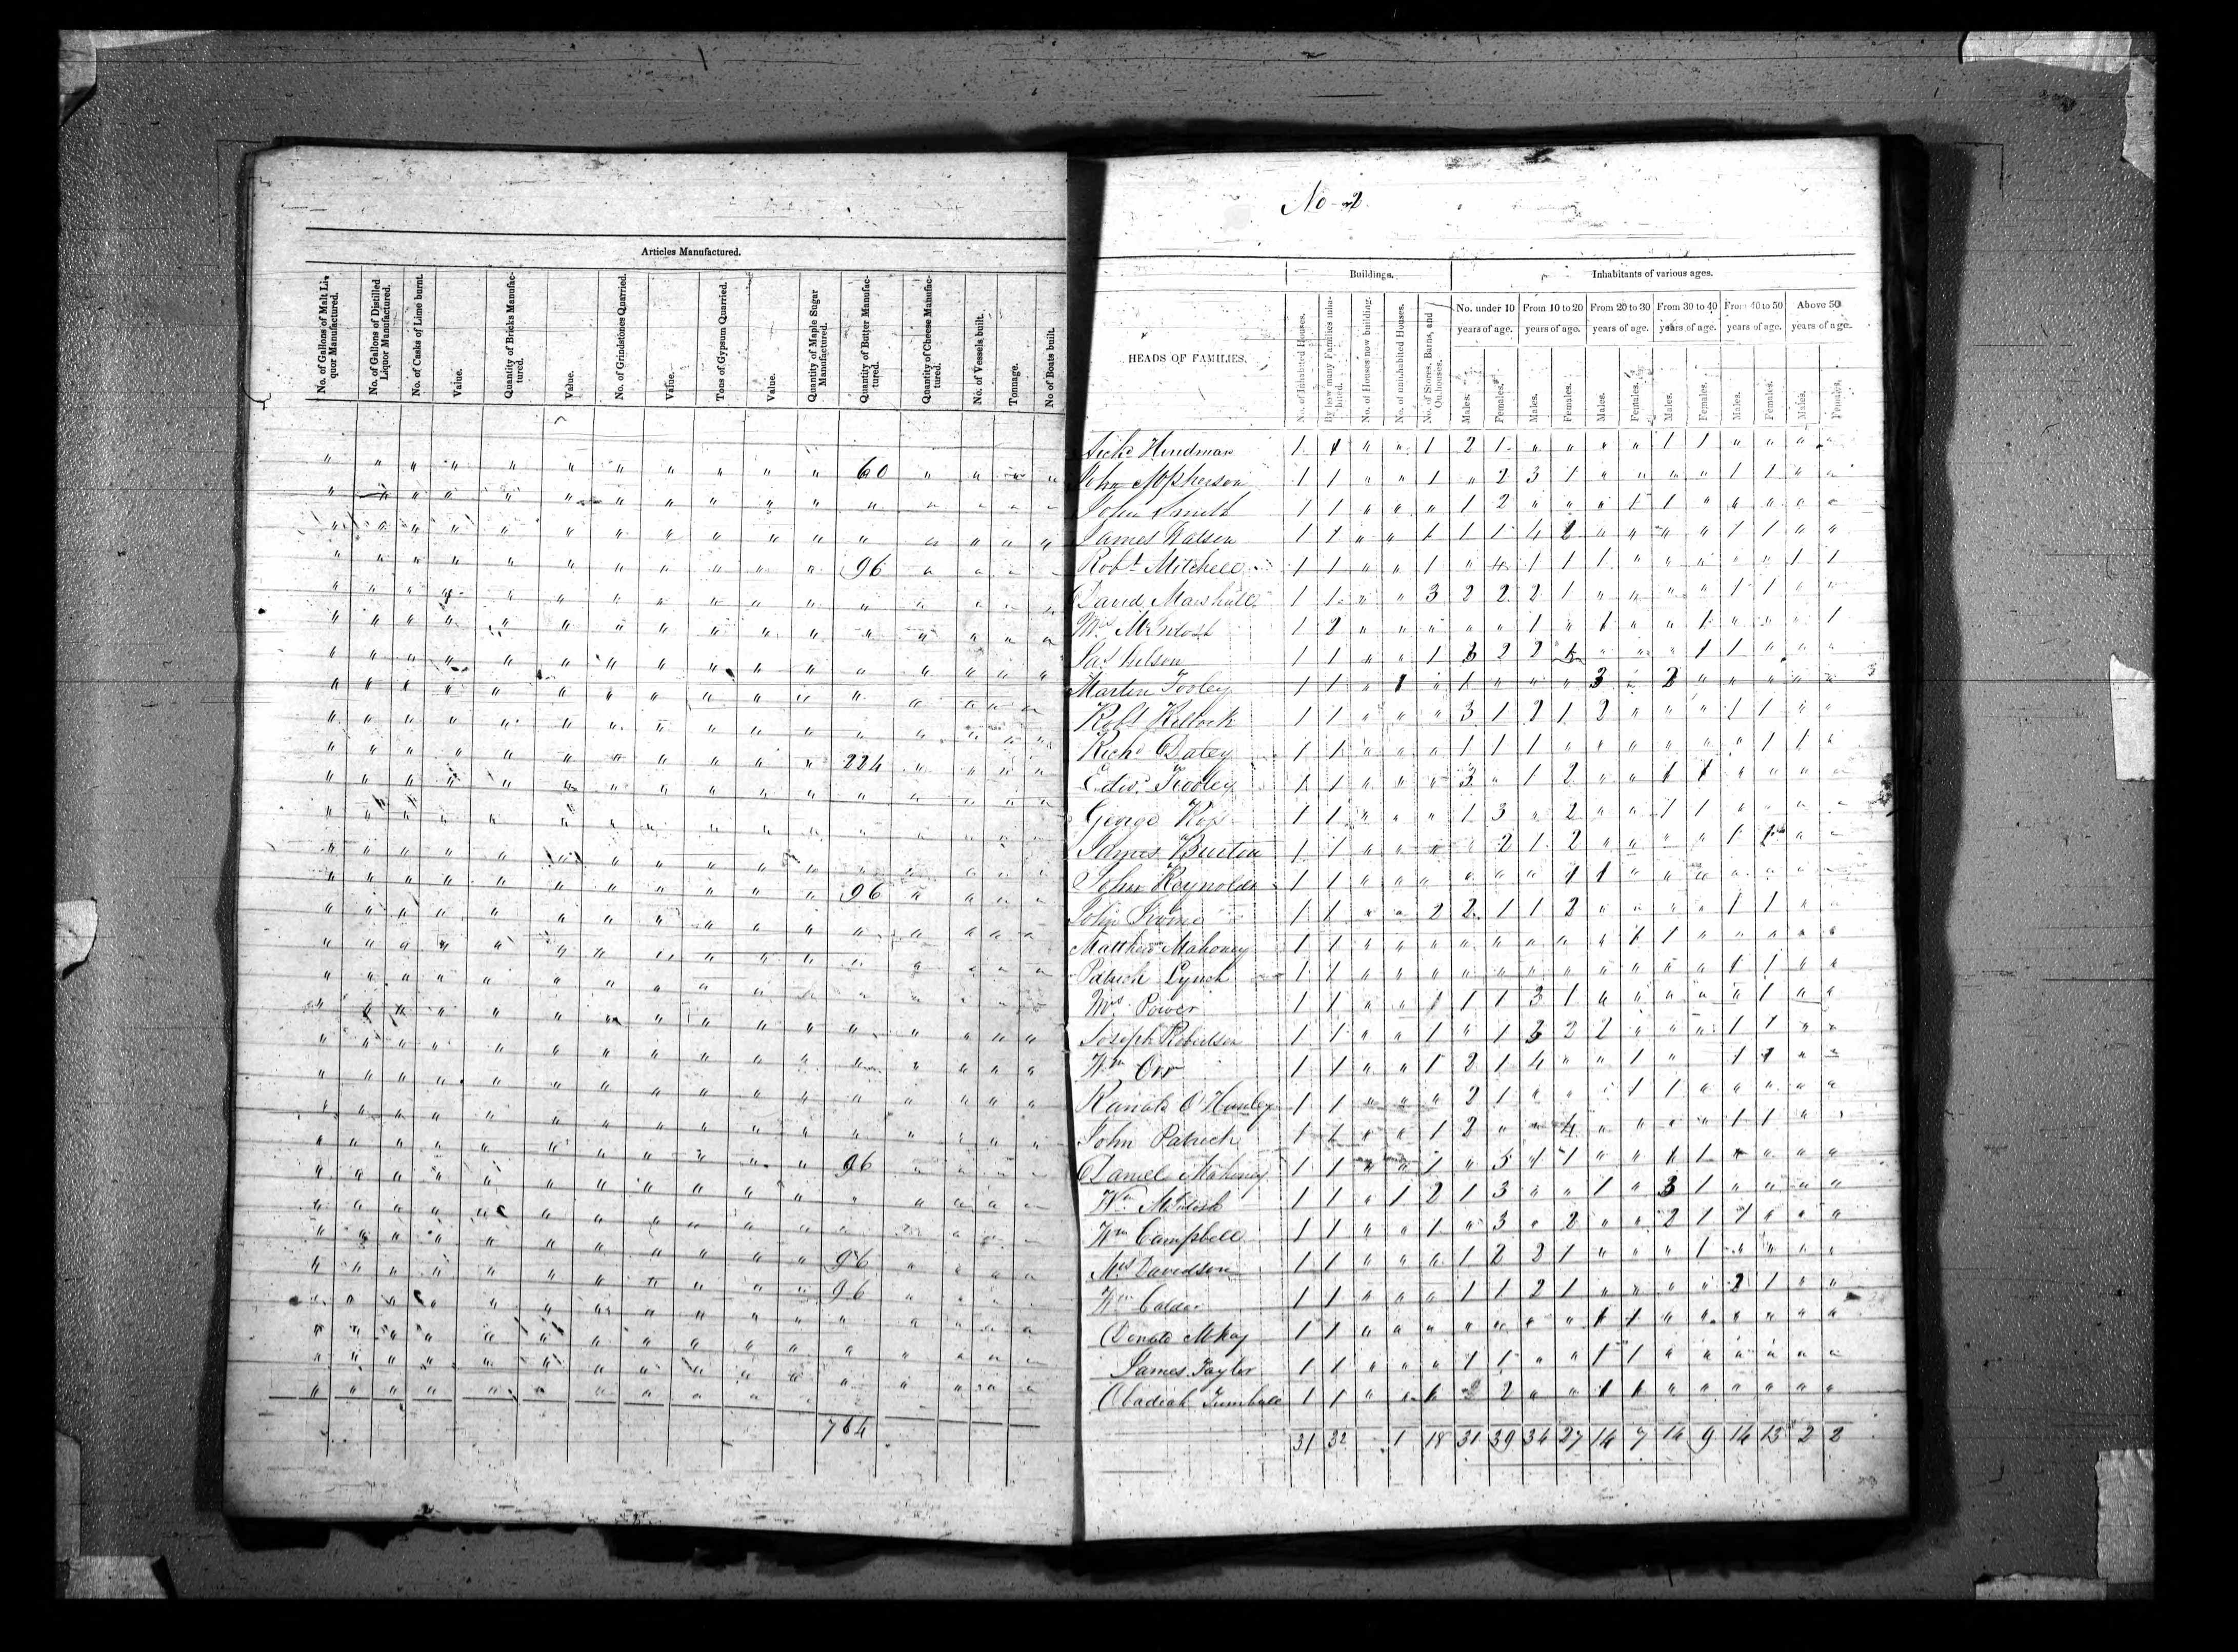 Articles Manufactured.
No. of Gallons of Malt Liquor Manufactured.
No. of Gallons of Distilled Liquor Manufactured.
No. of Casks of Lime burnt.
Value.
Quantity of Bricks Manufactured.
Value.
No. of Grindstones Quarried.
Value.
Tons of Gypsum Quarried.
Value.
Quantity of Maple Sugar Manufactured.
Quantity of Butter Manufactured.
Quantity of Cheese Manufactured.
No. of Vessels built.
Tonnage.
No of Boats built.
60
96
224
96
96
96
96
764
No 2
HEADS OF FAMILIES.
Buildings.
Inhabitants of various ages.
No. of Inhabited Houses.
By how many Families inhabited.
No. of Houses now building.
No. of uninhabited Houses.
No. of Stores, Barns, and Outhouses.
No. under 10 years of age.
From 10 to 20 years of age.
From 20 to 30 years of age.
From 30 to 40 years of age.
From 40 to 50 years of age.
Above 50 years of age.
Males. Females. Males. Females. Males. Females. Males. Females. Males. Females. Males. Females.
Richd Hindman 1 1 " " 1 2 1 " " " " 1 1 " " " "
John McPherson 1 1 " " 1 " 2 3 1 " " " " 1 1 " "
John Smith 1 1 " " " 1 2 " " " 1 1 " " " " "
James Watson 1 1 " " 1 1 1 4 2 " " " " 1 1 " "
Robt Mitchell 1 1 " " 1 " 4 1 1 1 " " " " " 1 1
David Marshall 1 1 " " 3 2 2 2 1 " " " " 1 1 " "
Mrs McIntosh 1 2 " " " " " 1 " 1 " " 1 " " " 1
Jas Nelson 1 1 " " 1 3 2 2 1 " " " 1 1 " " "
Martin Fooley 1 1 " 1 " 1 " " " 3 " 2 " " " " " 3
Robt Kellock 1 1 " " " 3 1 2 1 2 " " " 1 1 " "
Richd Daley 1 1 " " " 1 1 1 " " " " " " 1 1 "
Edwd Fooley 1 1 " " " 3 " 1 2 " " 1 1 " " " "
George Ross 1 1 " " " 1 3 " 2 " " 1 1 " " " "
James Burton 1 1 " " " " 2 1 2 " " " " 1 1 " "
John Reynolds 1 1 " " " " " " 1 1 " " " " " " "
John Irvine 1 1 " " 2 2 1 1 2 " " " " 1 1 " "
Matthew Mahoney 1 1 " " " " " " " " 1 1 " " " " "
Patrick Lynch 1 1 " " " " " " " " " " " 1 1 " "
Mrs Power 1 1 " " 1 1 1 3 1 " " " " " 1 " "
Joseph Robertson 1 1 " " 1 " 1 3 2 2 " " " 1 1 " "
Wm Orr 1 1 " " 1 2 1 4 " " 1 " 1 1 " "
Ranald O'Hanley 1 1 " " " 2 1 " " " 1 1 " " " " "
John Patrick 1 1 " " 1 2 " " 4 " " " " 1 1 "
Daniel Mahoney 1 1 " " 1 " 3 4 1 " " 1 1 " " " "
Wm McIntosh 1 1 " 1 2 1 3 " " 1 " 3 1 " " " "
Wm Campbell 1 1 " " 1 " 3 " 2 " " 2 1 1 " " "
Mrs Davidson 1 1 " " " 1 2 2 1 " " " 1 " " " "
Wm Calder 1 1 " " " 1 1 2 1 " " " " 2 1 " "
Donald McKay 1 1 " " " " " " " 1 1 " " " " " "
James Taylor 1 1 " " " 1 1 " " 1 1 " " " " " "
Obadiah Turnbull 1 1 " " 1 2 " " 1 1 " " " " " "
31 32 1 18 31 39 34 27 14 7 14 9 14 13 2 2